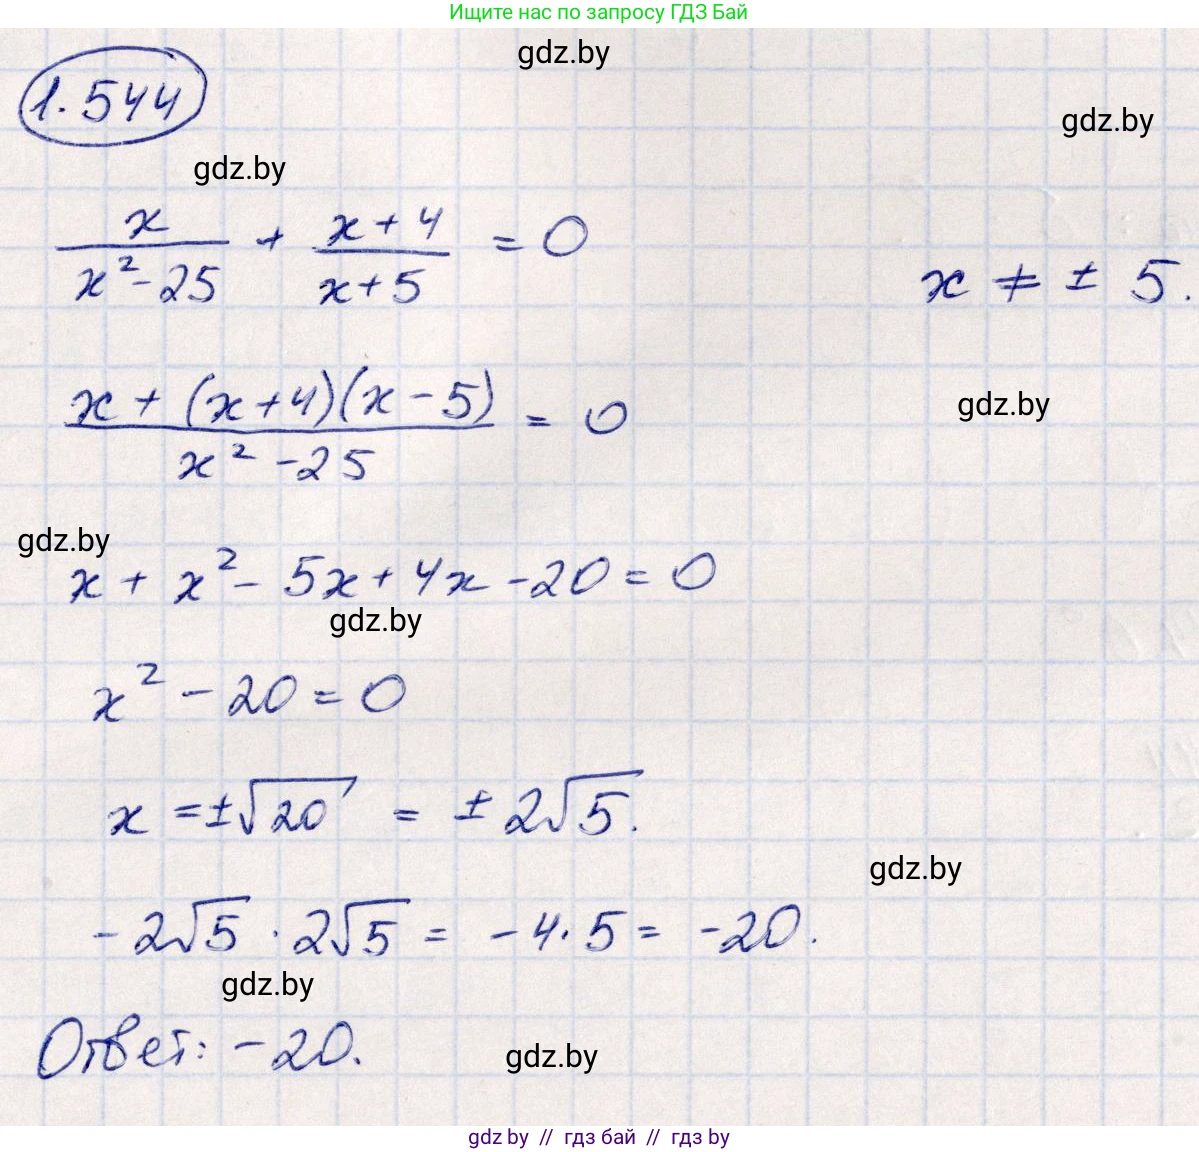 Ищите нас по запросу ГДЗ Бай
gdz.by
1.544
gdz.by
gdz.by
x/(x²-25) + (x+4)/(x+5) = 0
x ≠ ± 5.
(x + (x+4)(x-5))/(x²-25) = 0
gdz.by
gdz.by
x + x² - 5x + 4x - 20 = 0
gdz.by
x² - 20 = 0
x = ±√20 = ± 2√5.
gdz.by
- 2√5 · 2√5 = - 4 · 5 = -20.
gdz.by
Ответ: -20.
gdz.by
gdz by // гдз бай // гдз by